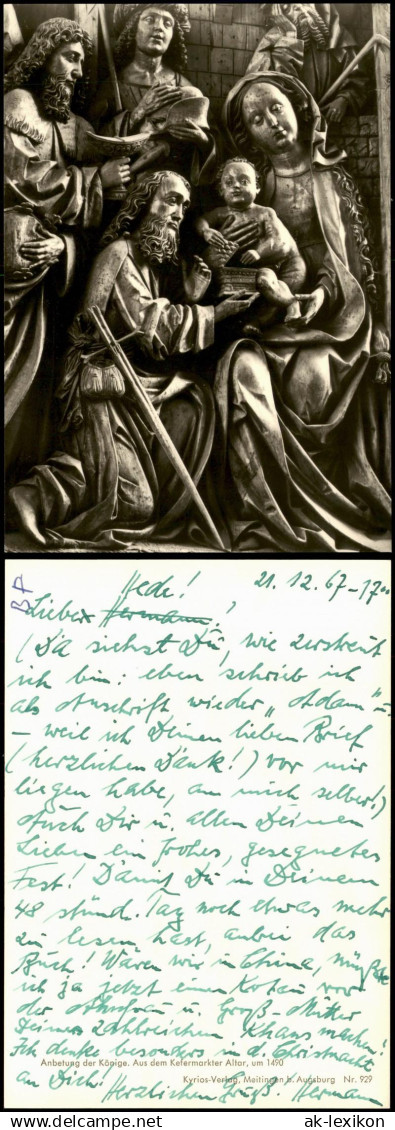 Hede! 21.12.67-17⁰⁰
Lieber Hermann!
(Da siehst Du, wie zerstreut
ich bin: eben schrieb ich
als Anschrift wieder „Adam" u.
- weil ich Deinen lieben Brief
(herzlichen Dank!) vor mir
liegen habe, an mich selber!)
Auch Dir u. allen Deinen
Lieben ein frohes, gesegnetes
Fest! Damit Du in Deinem
48 stünd. Tag noch etwas mehr
zu lesen hast, anbei das
Buch! Wären wir in China, müßte
ich ja jetzt einen Kotau vor
der Ahnfrau u. Groß-Mutter
Deines zahlreichen Khans machen!
Ich denke besonders in d. Christnacht
Anbetung der Könige. Aus dem Kefermarkter Altar, um 1490
an Dich! Herzlichen Gruß. Hermann
Kyrios-Verlag, Meitingen b. Augsburg Nr. 929
© www.delcampe.net
ak-lexikon